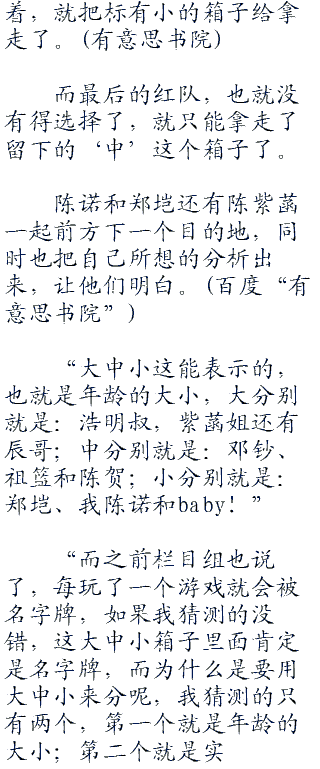 着，就把标有小的箱子给拿
走了。(有意思书院)
而最后的红队，也就没
有得选择了，就只能拿走了
留下的‘中’这个箱子了。
陈诺和郑垲还有陈紫菡
一起前方下一个目的地，同
时也把自己所想的分析出
来，让他们明白。(百度“有
意思书院”)
“大中小这能表示的，
也就是年龄的大小，大分别
就是：浩明叔，紫菡姐还有
辰哥；中分别就是：邓钞、
祖篮和陈贺；小分别就是：
郑垲、我陈诺和baby！”
“而之前栏目组也说
了，每玩了一个游戏就会被
名字牌，如果我猜测的没
错，这大中小箱子里面肯定
是名字牌，而为什么是要用
大中小来分呢，我猜测的只
有两个，第一个就是年龄的
大小；第二个就是实